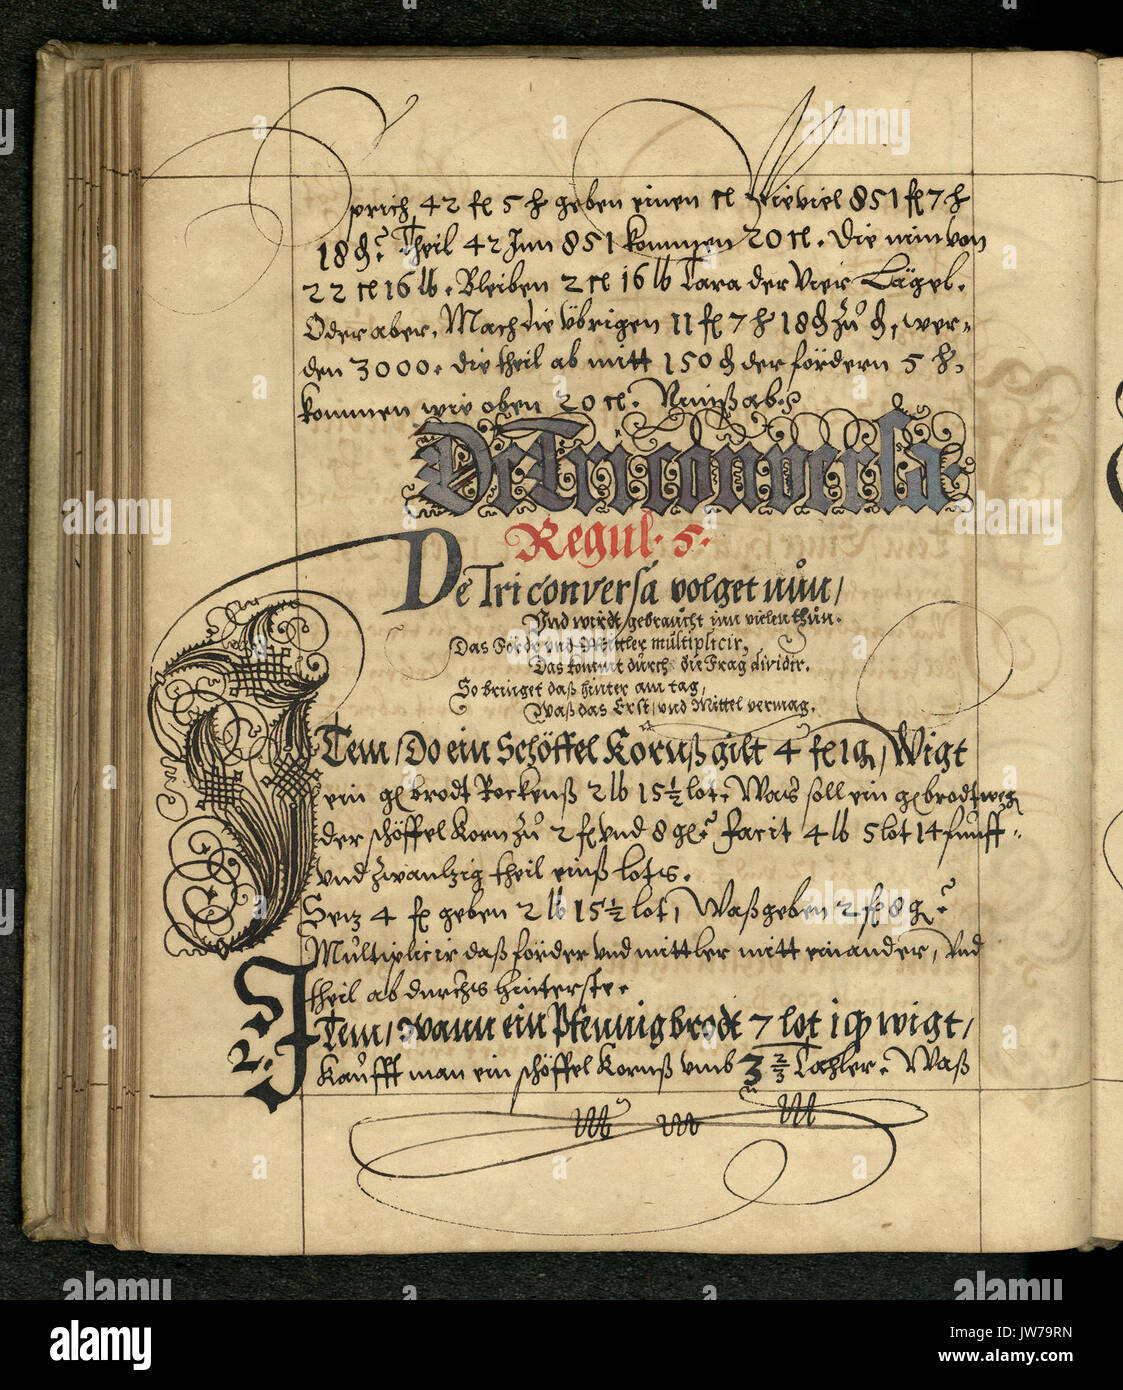 Sprich 42 fl 5 ß geben einen cl wieviel 851 fl 7 ß
18 ₰? Theil 42 Inn 851 kommen 20 cl. Die nim von
22 cl 16 lb. Bleiben 2 cl 16 lb Tara der Vier Lägel.
Oder aber, Mach die übrigen 11 fl 7 ß 18 ₰ Zu ₰, wer-
den 3000. die theil ab mitt 150 ₰ der fördern 5 ß.
kommen wie oben 20 cl. Nimß ab.
De Tri conversa.
Regul. 5.
De Tri conversa volget nůn/
Und wirdt/ gebraucht inn vielen thůn.
Das Förder und Mittler multiplicir,
Das kommt durch die Frag dividir.
So bringet daß hinter am tag,
Waß das Erst/ und Mittel vermag.
ITem/ Do ein Schöffel Kornß gilt 4 fl 1 g, Wigt
ein gl brodt Rockenß 2 lb 15½ lot. Was soll ein gl brodt weg
der schöffel Korn Zu 2 fl und 8 gl? Facit 4 lb 5 lot 14 funff-
und Zwantzig theil einß lots.
Setz 4 fl geben 2 lb 15½ lot, Waß geben 2 fl 8 g?
Multiplicir daß förder und mittler mitt einander, Und
theil ab durchs hinterste.
2. ITem/ wann ein Pfennig brodt 7 lot 1 q wigt/
Kaufft man ein schöffel Kornß umb 3 ⅔ Tahler. Waß
alamy
Image ID: JW79RN
www.alamy.com